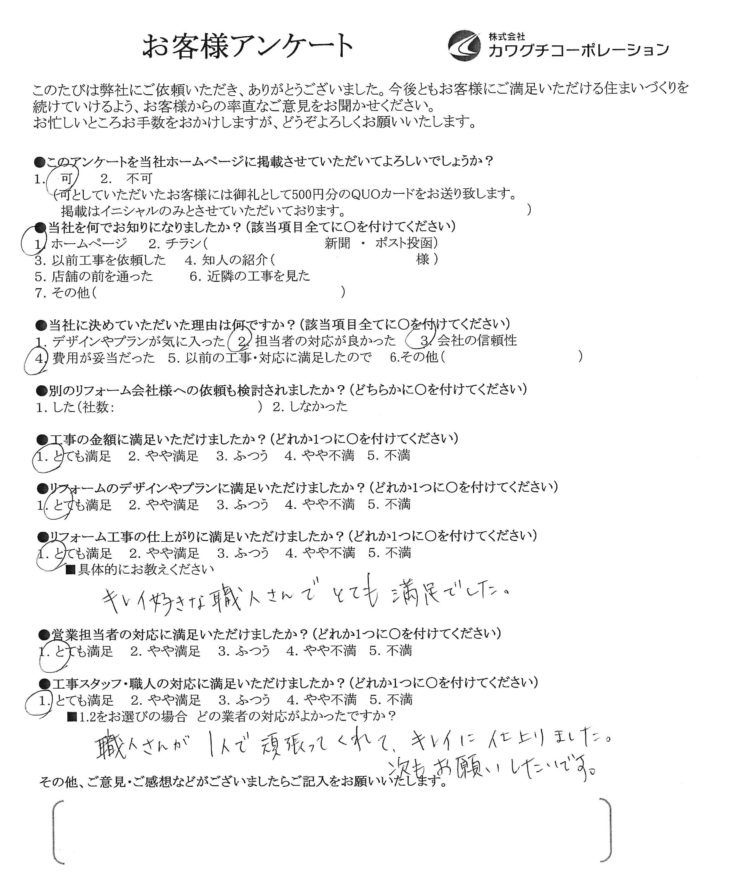 お客様アンケート
株式会社
カワグチコーポレーション
このたびは弊社にご依頼いただき、ありがとうございました。今後ともお客様にご満足いただける住まいづくりを
続けていけるよう、お客様からの率直なご意見をお聞かせください。
お忙しいところお手数をおかけしますが、どうぞよろしくお願いいたします。
●このアンケートを当社ホームページに掲載させていただいてよろしいでしょうか?
1. 可 2. 不可
(可としていただいたお客様には御礼として500円分のQUOカードをお送り致します。
掲載はイニシャルのみとさせていただいております。 )
●当社を何でお知りになりましたか?(該当項目全てに○を付けてください)
1. ホームページ 2. チラシ( 新聞 ・ ポスト投函)
3. 以前工事を依頼した 4. 知人の紹介( 様 )
5. 店舗の前を通った 6. 近隣の工事を見た
7. その他( )
●当社に決めていただいた理由は何ですか?(該当項目全てに○を付けてください)
1. デザインやプランが気に入った 2. 担当者の対応が良かった 3. 会社の信頼性
4. 費用が妥当だった 5. 以前の工事・対応に満足したので 6.その他( )
●別のリフォーム会社様への依頼も検討されましたか?(どちらかに○を付けてください)
1. した(社数: ) 2. しなかった
●工事の金額に満足いただけましたか?(どれか1つに○を付けてください)
1. とても満足 2. やや満足 3. ふつう 4. やや不満 5. 不満
●リフォームのデザインやプランに満足いただけましたか?(どれか1つに○を付けてください)
1. とても満足 2. やや満足 3. ふつう 4. やや不満 5. 不満
●リフォーム工事の仕上がりに満足いただけましたか?(どれか1つに○を付けてください)
1. とても満足 2. やや満足 3. ふつう 4. やや不満 5. 不満
■具体的にお教えください
キレイ好きな職人さんで とても 満足でした。
●営業担当者の対応に満足いただけましたか?(どれか1つに○を付けてください)
1. とても満足 2. やや満足 3. ふつう 4. やや不満 5. 不満
●工事スタッフ・職人の対応に満足いただけましたか?(どれか1つに○を付けてください)
1. とても満足 2. やや満足 3. ふつう 4. やや不満 5. 不満
■1.2をお選びの場合 どの業者の対応がよかったですか?
職人さんが 1人で 頑張ってくれて、キレイに 仕上りました。
次もお願いしたいです。
その他、ご意見・ご感想などがございましたらご記入をお願いいたします。